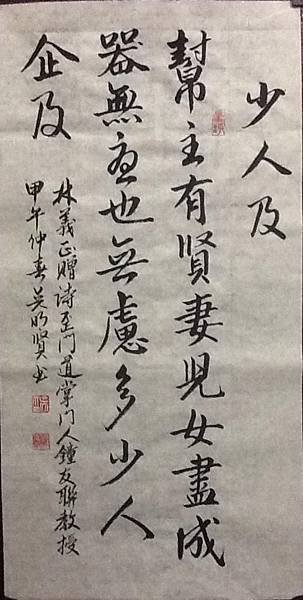 少人及
幫主有賢妻兒女盡成
器無憂也無慮多少人
企及
林義正贈诗至门道掌门人鐘友聯教授
甲午仲春吴明賢书